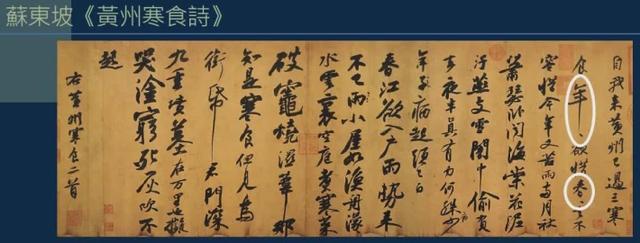 蘇東坡《黃州寒食詩》
自我来黄州已過三寒
食年〻欲惜春〻去不
容惜今年又苦雨兩月秋
蕭瑟卧聞海棠花泥
汙燕支雪闇中偷負
去夜半真有力何殊少
年子病起頭已白
春江欲入户雨勢来
不已雨小屋如漁舟濛〻
水雲裏空庖煮寒菜
破竈燒濕葦那
知是寒食但見烏
銜帋君門深
九重墳墓在万里也擬
哭塗窮死灰吹不
起
右黄州寒食二首